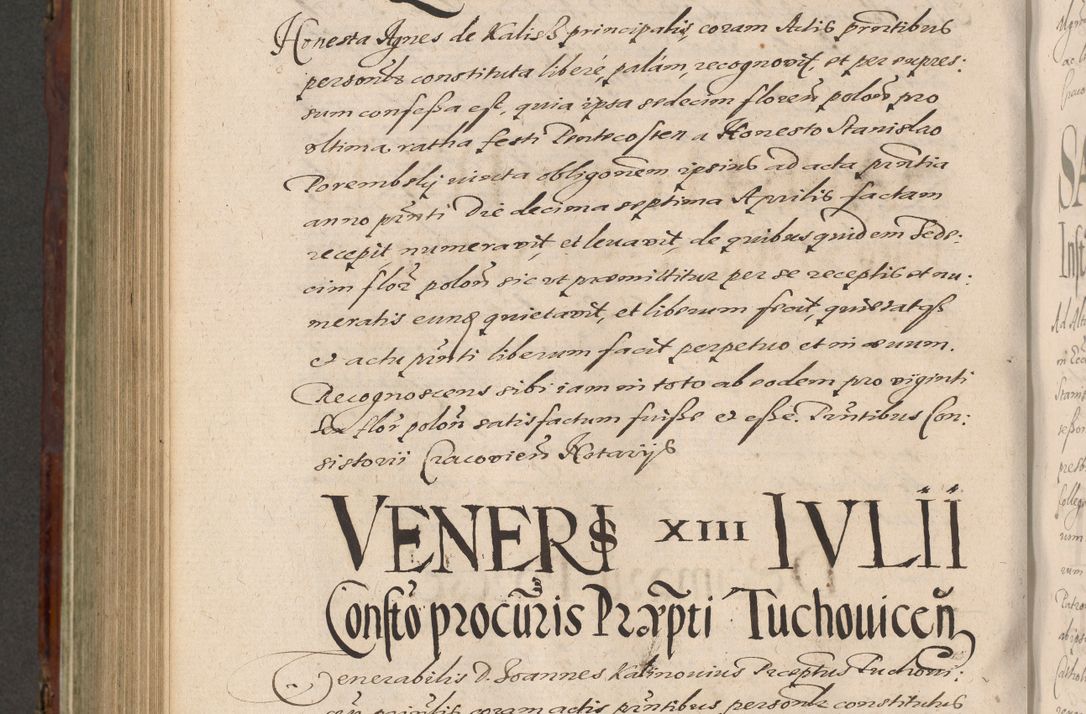 Honesta Agnes de Kalisz principalis, coram Actis prntibus
personlr constituta liberé, palám, recognovit et per expres:
sum confessa est, quia ipsa sedecim floreñ poloñ pro
ultima ratha festi Pentecosten a Honesto Stanislao
Porembskj iuxta obligonem ipsius ad acta prntia
anno prnti Die decima septima Aprilis factam
recepit numeravit, et levavit, de quibus quidem Sede:
cim flor poloñ sic ut præmittitur per se receptis et nu:
meratis eunq quietavit, et liberum fecit, quietatqs
et actu prnti liberum facit perpetuo et in ævum.
Recognoscens sibi iam in toto ab eodem pro viginti
sex flor poloñ satisfactum fuisse et esse. Prntibus Con:
sistorii Cracovieñ Notarijs
VENERIS XIII IVLII
Consto procuris Præpti Tuchoviceñ
Venerabilis D. Joannes Kalinovius Præceptus Tuchovi:
ceñ coram actis prntibus personlr constitutus